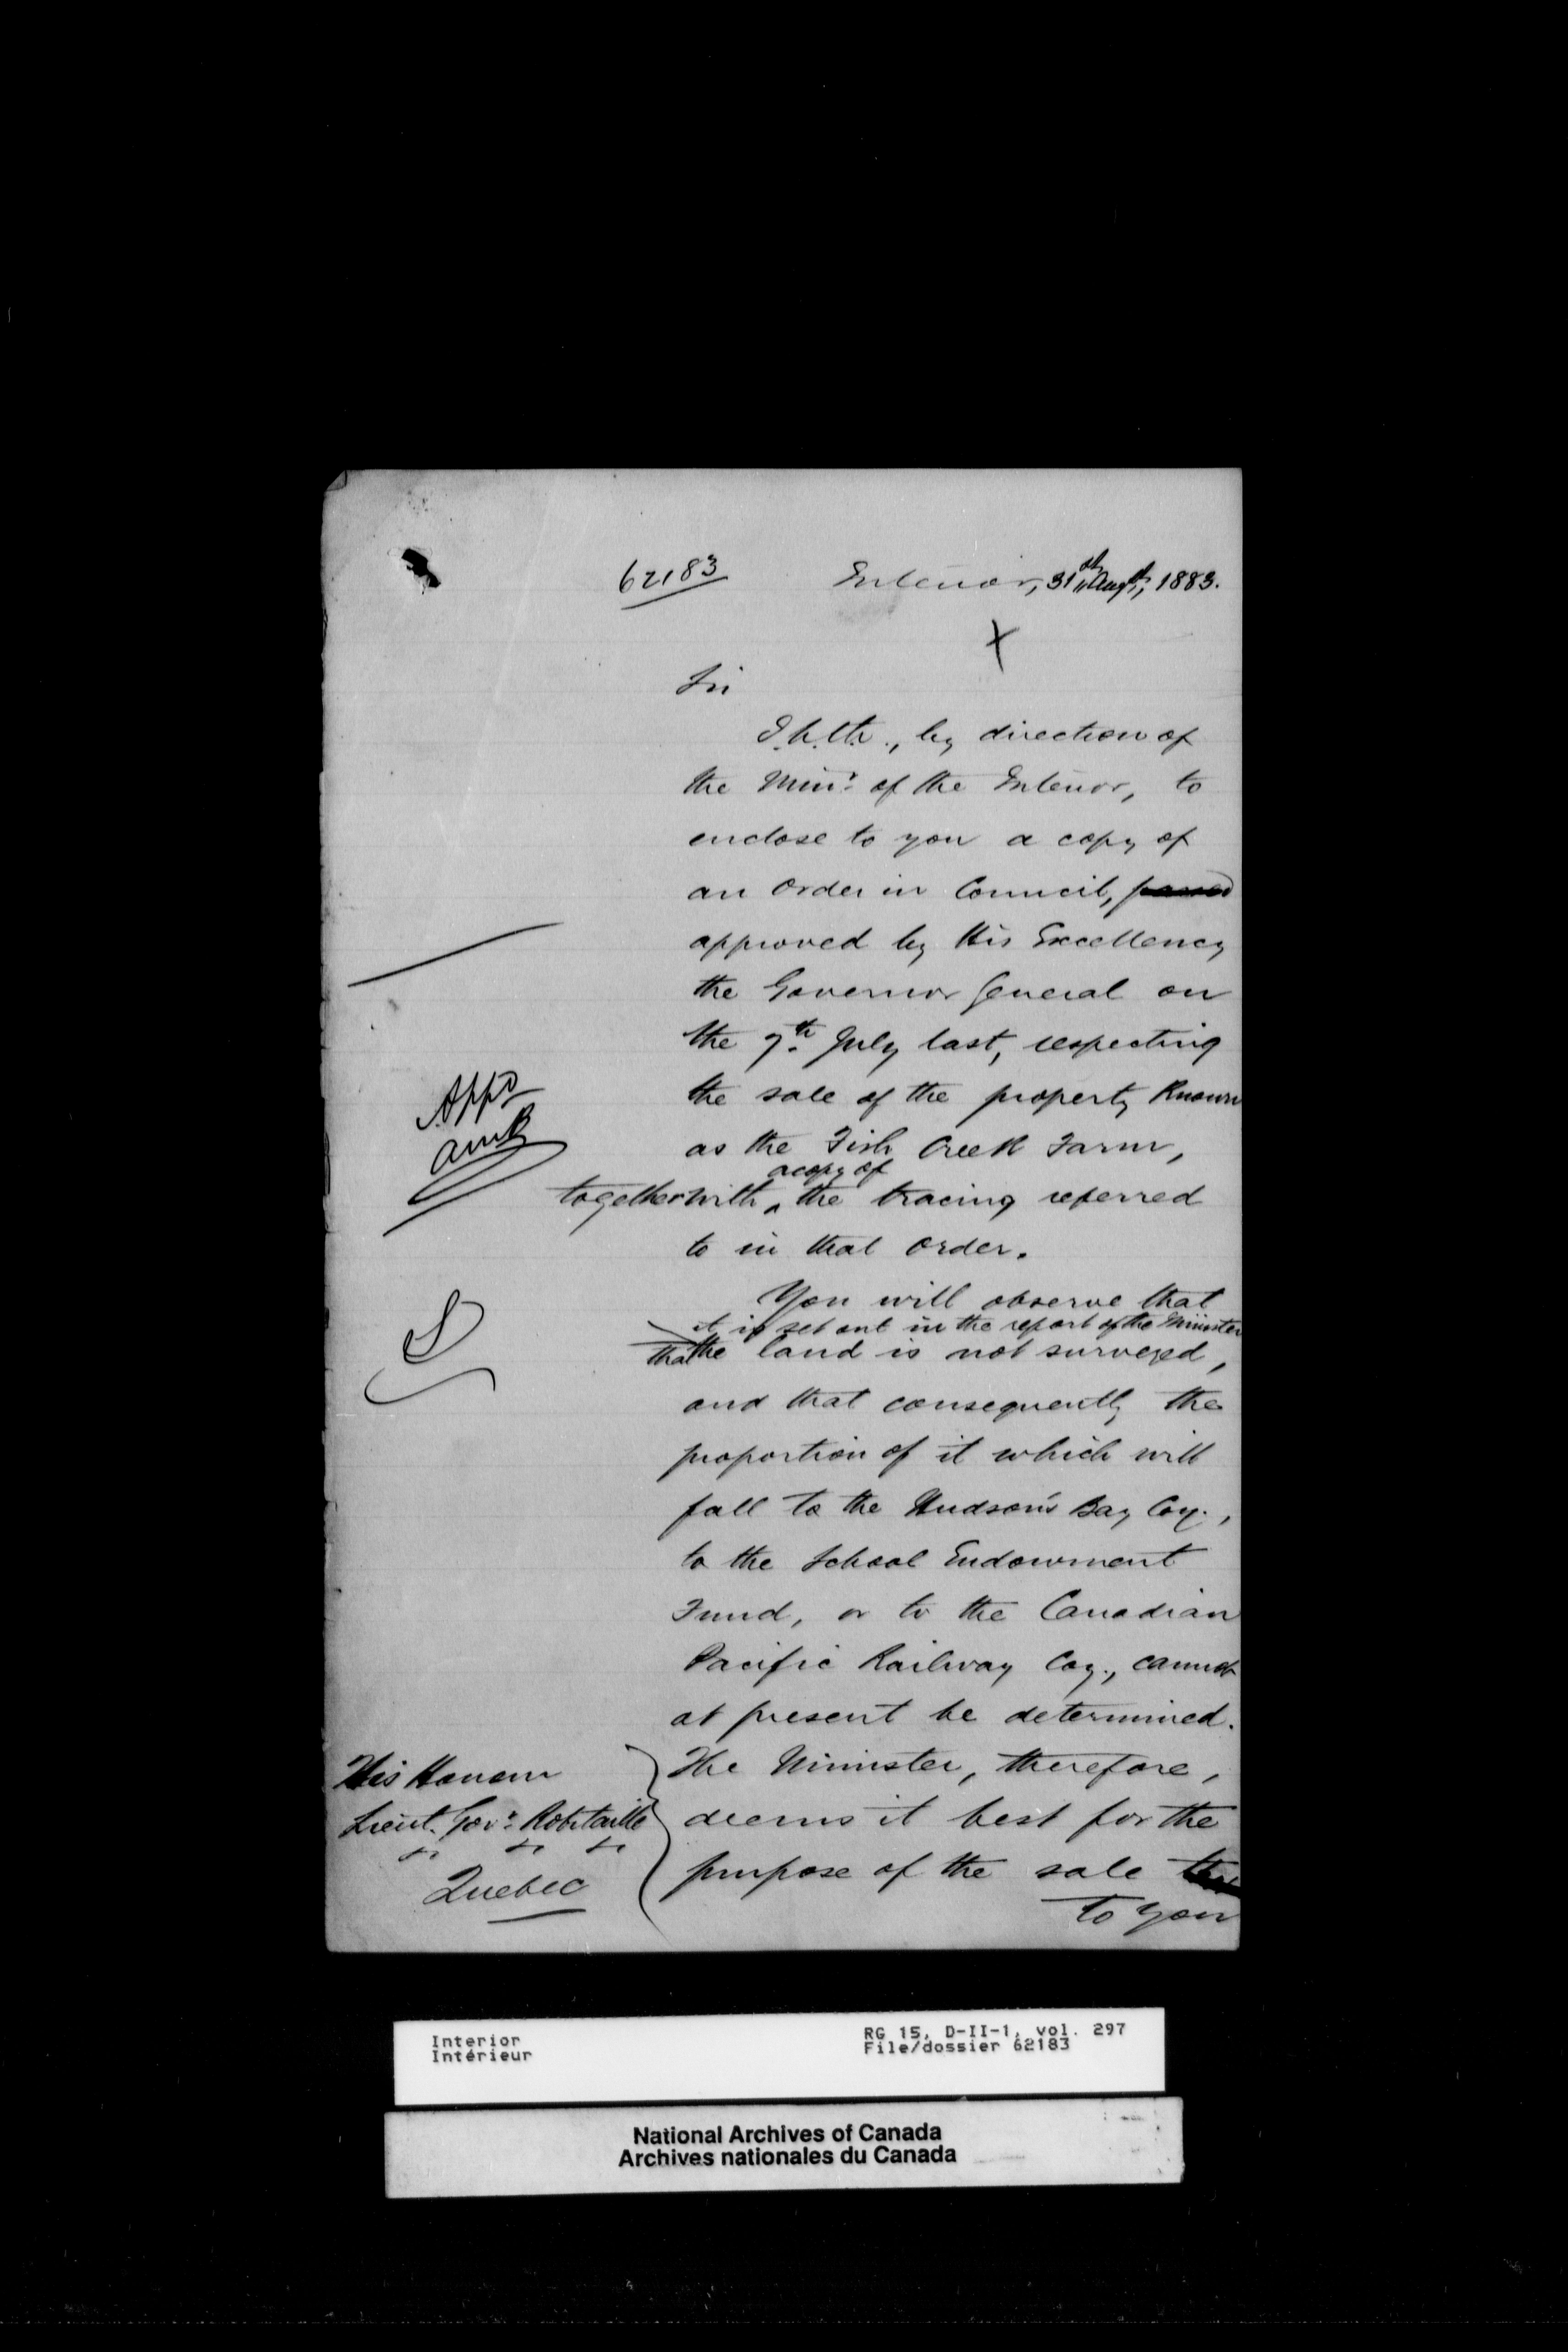 62183
Interior, 31st Augt, 1883.
X
Sir
I.h.th., by direction of
the Minr. of the Interior, to
enclose to you a copy of
an Order in Council, passed
approved by His Excellency
the Governor General on
the 7th. July last, respecting
the sale of the property known
as the Fish Creek Farm,
a copy of
together with ‸ the tracing referred
to in that Order.
You will observe that
it is set out in the report of the Minister
that the land is not surveyed,
and that consequently the
proportion of it which will
fall to the Hudson's Bay Coy.,
to the School Endowment
Fund, or to the Canadian
Pacific Railway Coy., cannot
at present be determined.
The Minister, therefore,
deems it best for the
purpose of the sale
to you
Appd
AMB
His Honour
Lieut. Govr. Robitaille
Quebec
Interior
Intérieur
RG 15, D-II-1, vol. 297
File/dossier 62183
National Archives of Canada
Archives nationales du Canada